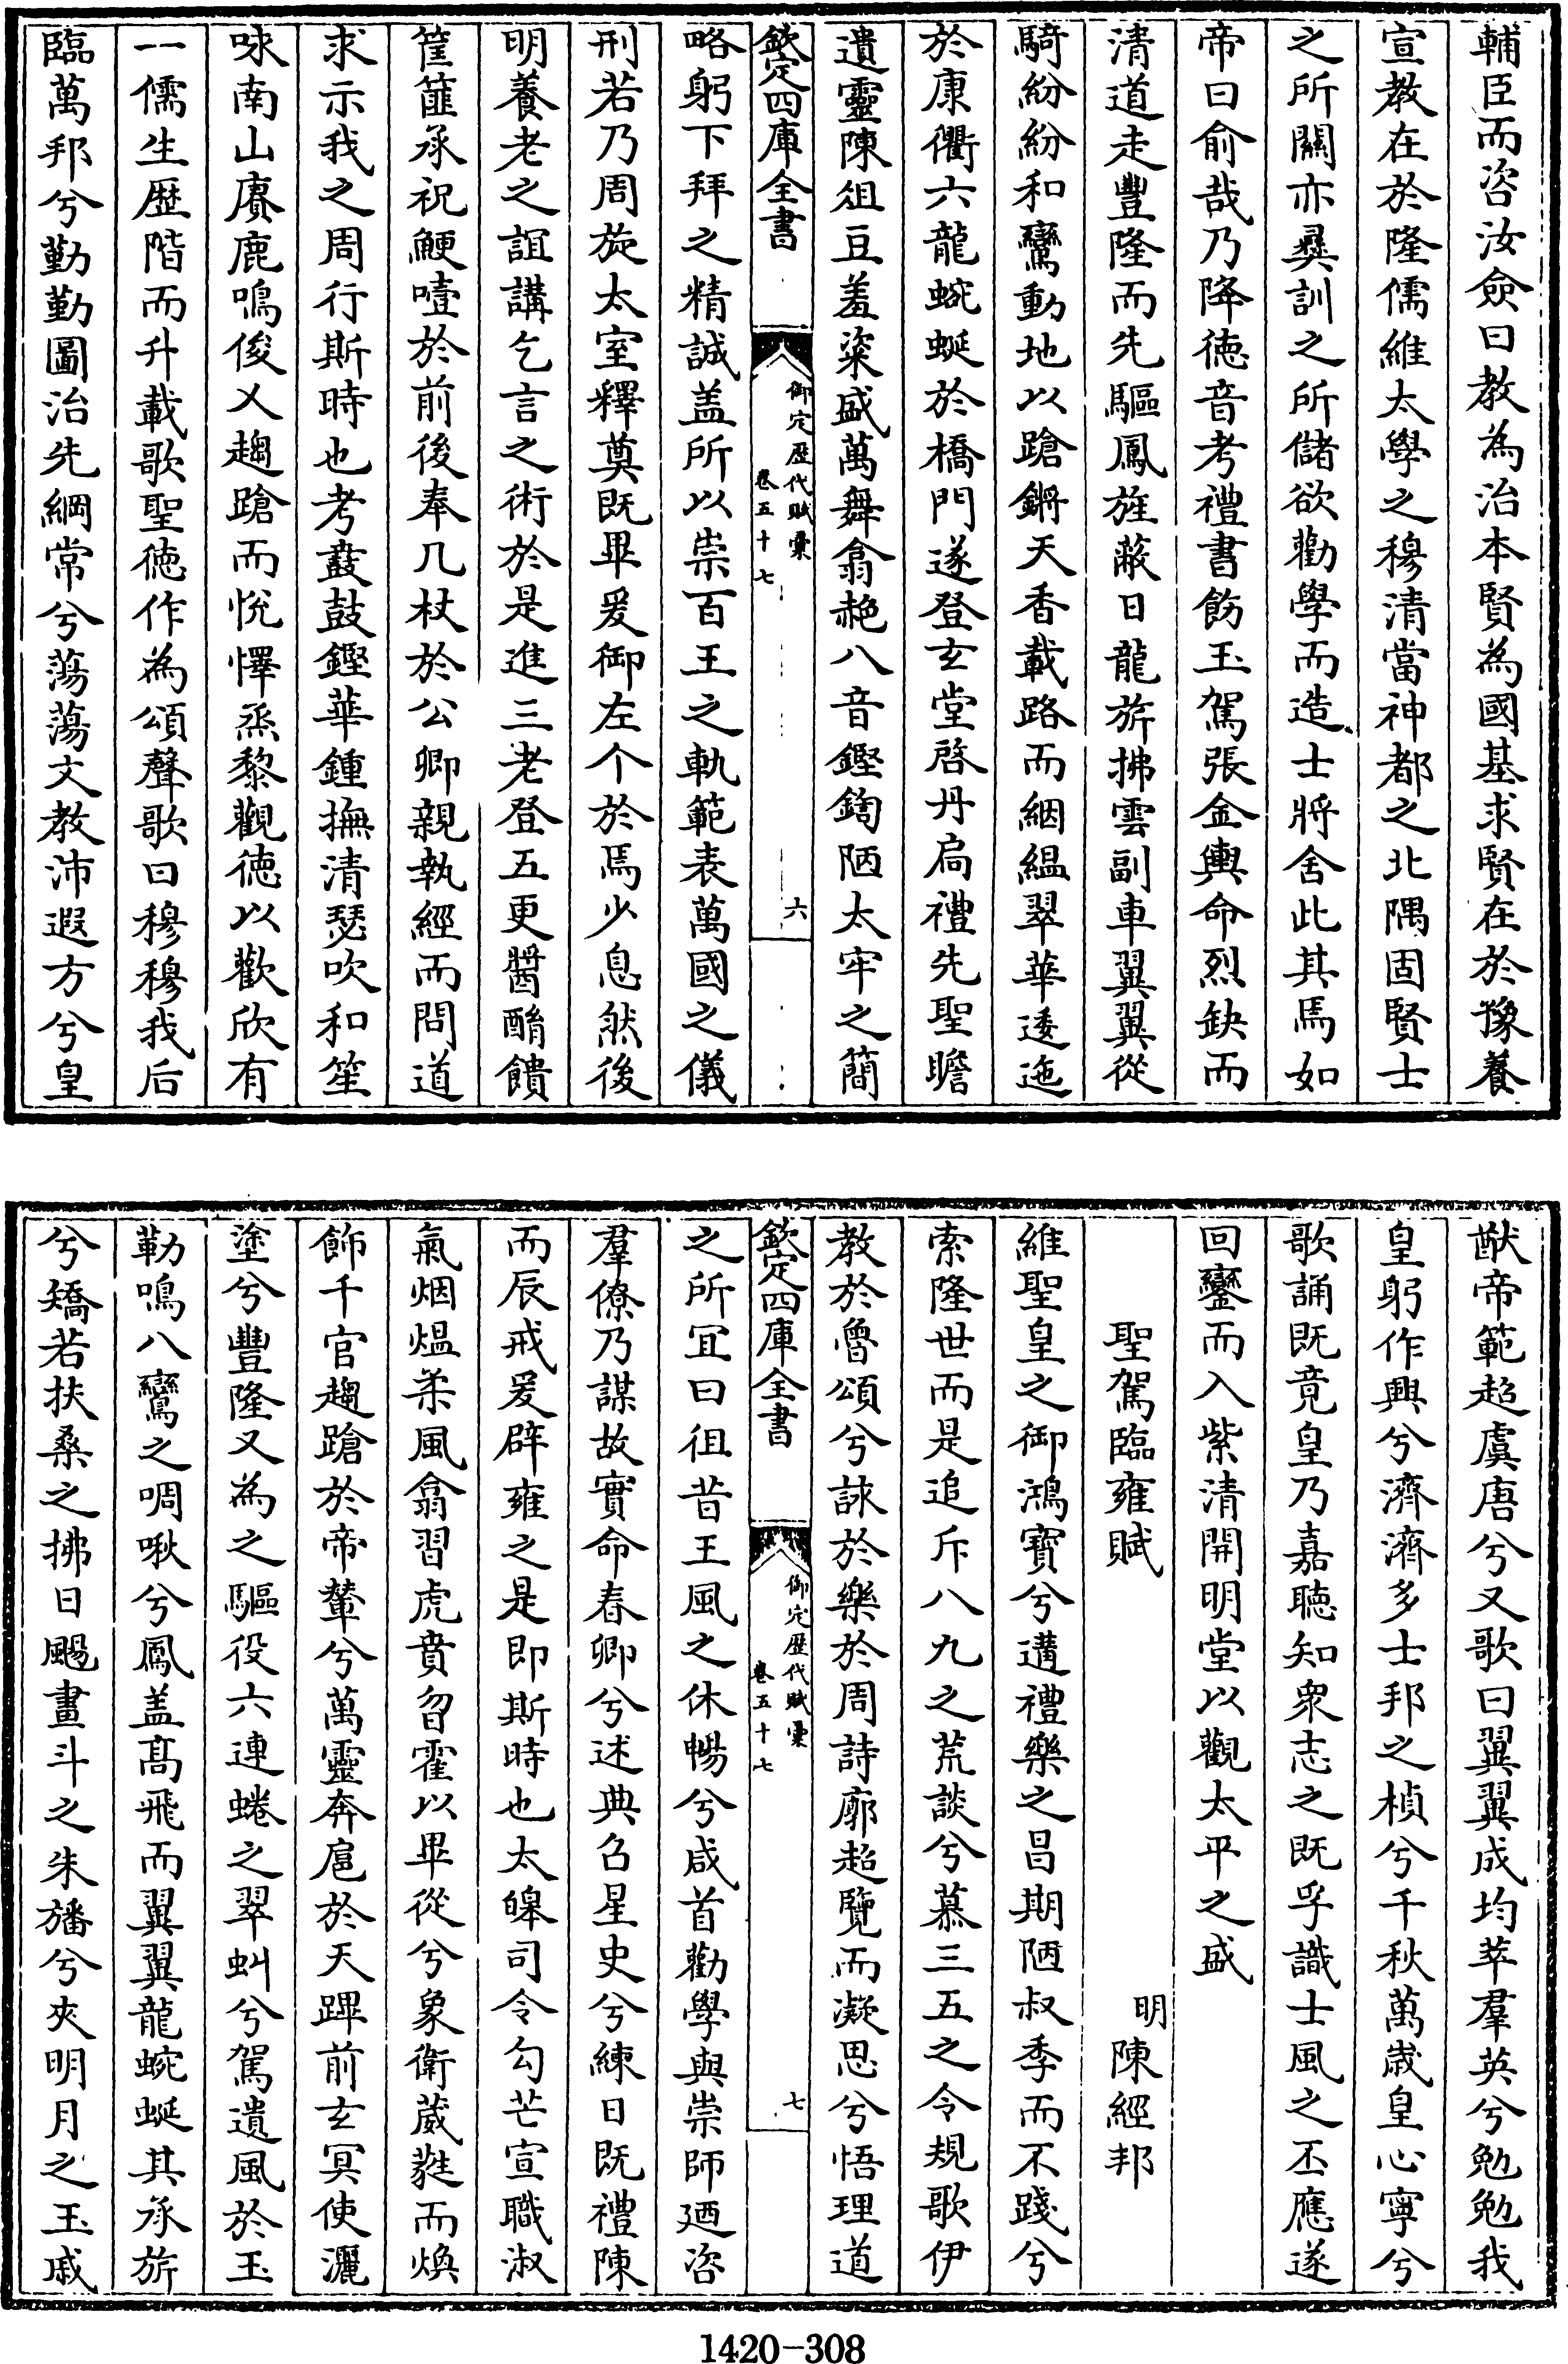 輔臣而咨汝僉曰教為治本賢為國基求賢在於豫養
宣教在於隆儒維太學之穆清當神都之北隅固賢士
之所關亦彞訓之所儲欲勸學而造士將舍此其焉如
帝曰俞哉乃降德音考禮書飭玉駕張金輿命烈缺而
清道走豐隆而先驅鳳旌蔽日龍旂拂雲副車翼翼從
騎紛紛和鸞動地以蹌鏘天香載路而絪緼翠華逶迤
於康衢六龍蜿蜒於橋門遂登玄堂啓丹扃禮先聖瞻
遺靈陳俎豆羞粢盛萬舞翕赩八音鏗鍧陋太牢之簡
欽定四庫全書
御定歷代賦彙
卷五十七
六
略躬下拜之精誠盖所以崇百王之軌範表萬國之儀
刑若乃周旋太室釋奠既畢爰御左个於焉少息然後
明養老之誼講乞言之術於是進三老登五更醬酳饋
筐篚承祝鯁噎於前後奉几杖於公卿親執經而問道
求示我之周行斯時也考鼖鼓鏗華鍾撫清瑟吹和笙
味南山賡鹿鳴俊乂趨蹌而悅懌烝黎觀德以歡欣有
一儒生歷階而升載歌聖德作為頌聲歌曰穆穆我后
臨萬邦兮勤勤圖治先綱常兮蕩蕩文教沛遐方兮皇
猷帝範超虞唐兮又歌曰翼翼成均萃羣英兮勉勉我
皇躬作興兮濟濟多士邦之楨兮千秋萬歲皇心寧兮
歌誦既竟皇乃嘉聽知衆志之既孚識士風之丕應遂
回鑾而入紫清開明堂以觀太平之盛
聖駕臨雍賦
明
陳經邦
維聖皇之御鴻寶兮遘禮樂之昌期陋叔季而不踐兮
索隆世而是追斥八九之荒談兮慕三五之令規歌伊
教於魯頌兮詠於樂於周詩廓超覽而凝思兮悟理道
欽定四庫全書
御定歷代賦彙
卷五十七
七
之所宜曰徂昔王風之休暢兮咸首勸學與崇師廼咨
羣僚乃謀故實命春卿兮述典召星史兮練日既禮陳
而辰戒爰辟雍之是即斯時也太皞司令勾芒宣職淑
氣烟熅柔風翕習虎賁曶霍以畢從兮象衛葳蕤而煥
飾千官趨蹌於帝輦兮萬靈奔扈於天蹕前玄冥使灑
塗兮豐隆又為之驅役六連蜷之翠虯兮駕遺風於玉
勒鳴八鸞之啁啾兮鳳盖髙飛而翼翼龍蜿蜒其承旂
兮矯若扶桑之拂日颺畫斗之朱旛兮夾明月之玉戚
1420-308